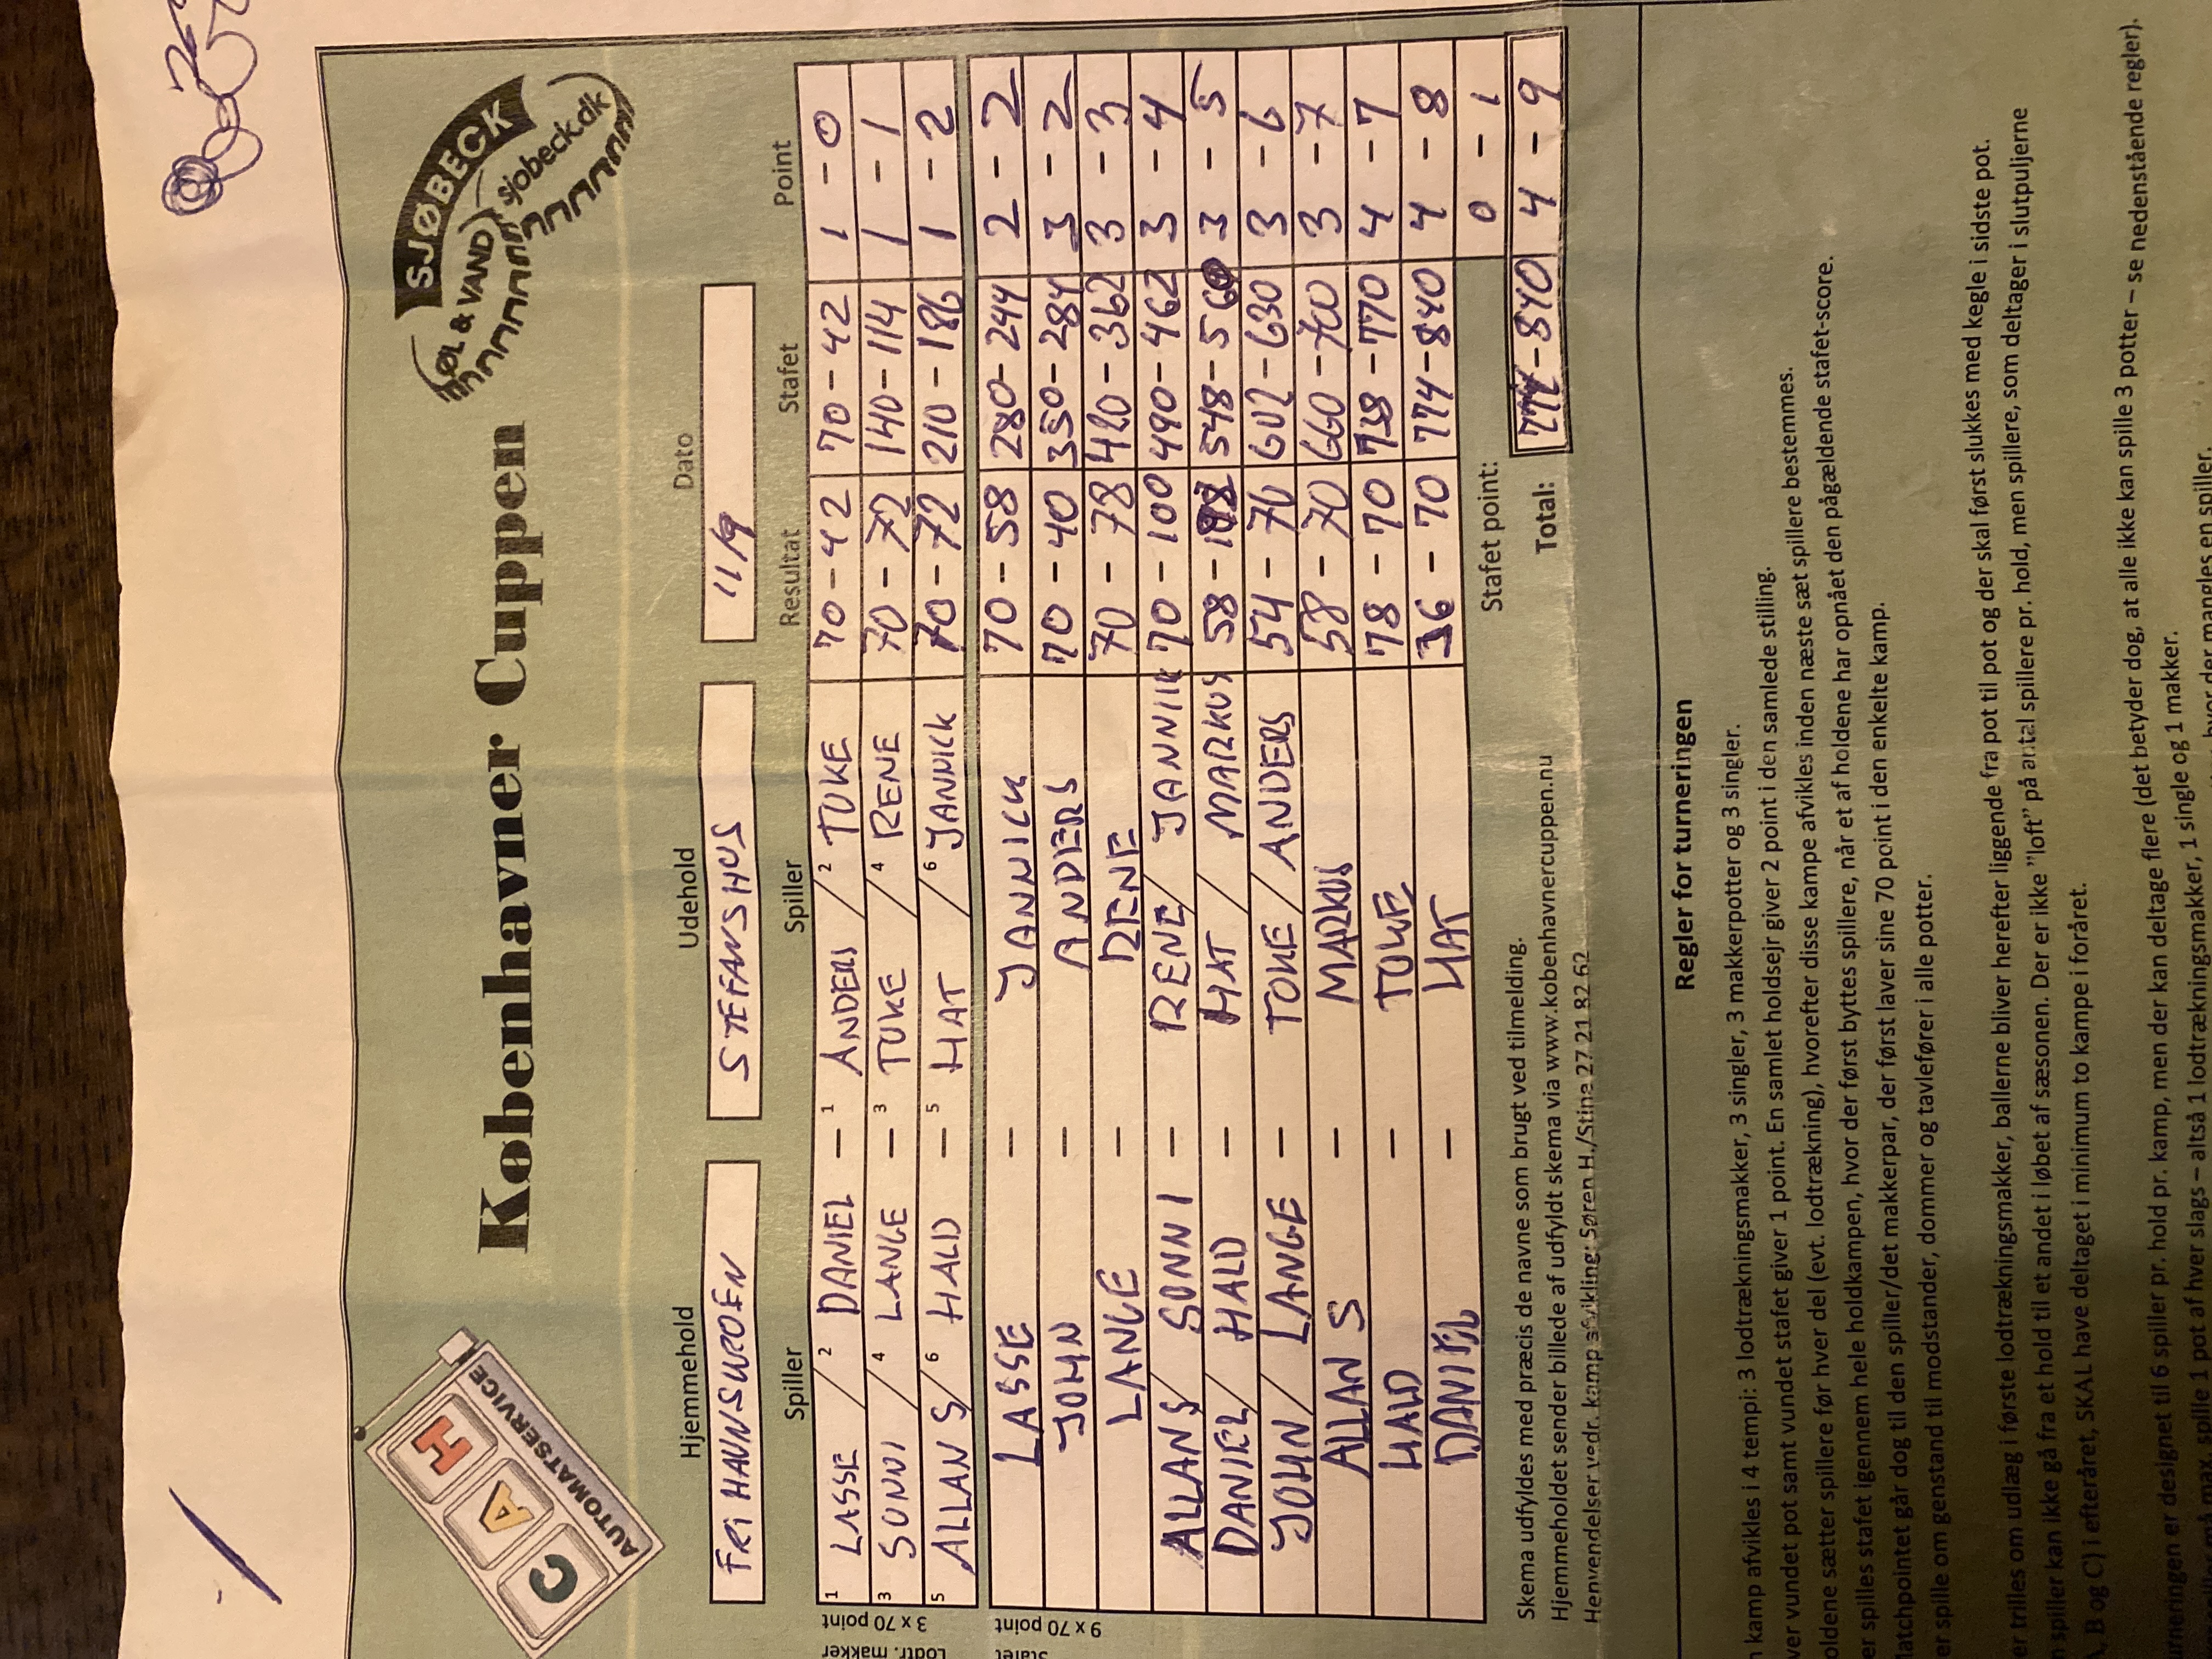 SJØBECK
ØL & VAND
sjobeck.dk
C A H
AUTOMATSERVICE
Københavner Cuppen
Hjemmehold Udehold Dato
FRI HAVNSKROEN STEFANSHUS 11/9
Spiller Spiller Resultat Stafet Point
1 LASSE / 2 DANIEL – 1 ANDERS / 2 TOKE 70 – 42 70 – 42 1 – 0
3 SONNI / 4 LANGE – 3 TOKE / 4 RENE 70 – 72 140 – 114 1 – 1
5 ALLAN S / 6 HALD – 5 HAT / 6 JANNICK 70 – 72 210 – 186 1 – 2
Lodtr. makker
3 x 70 point
LASSE – JANNICK 70 – 58 280 – 244 2 – 2
JOHN – ANDERS 70 – 40 350 – 284 3 – 2
LANGE – RENE 70 – 78 420 – 362 3 – 3
ALLAN S / SONNI – RENE / JANNIK 70 – 100 490 – 462 3 – 4
DANIEL / HALD – HAT / MARKUS 58 – 548 – 560 3 – 5
JOHN / LANGE – TOKE / ANDERS 54 – 70 602 – 630 3 – 6
ALLAN S – MARKUS 58 – 70 660 – 700 3 – 7
HALD – TOKE 78 – 70 738 – 770 4 – 7
DANIEL – HAT 36 – 70 774 – 840 4 – 8
Stafet
9 x 70 point
Stafet point: 0 – 1
Total: 774 – 840 4 – 9
Skema udfyldes med præcis de navne som brugt ved tilmelding.
Hjemmeholdet sender billede af udfyldt skema via www.kobenhavnercuppen.nu
Henvendelser vedr. kamp afvikling: Søren H./Stine 27 21 82 62
Regler for turneringen
kamp afvikles i 4 tempi: 3 lodtrækningsmakker, 3 singler, 3 makkerpotter og 3 singler.
ver vundet pot samt vundet stafet giver 1 point. En samlet holdsejr giver 2 point i den samlede stilling.
oldene sætter spillere før hver del (evt. lodtrækning), hvorefter disse kampe afvikles inden næste sæt spillere bestemmes.
er spilles stafet igennem hele holdkampen, hvor der først byttes spillere, når et af holdene har opnået den pågældende stafet-score.
atchpointet går dog til den spiller/det makkerpar, der først laver sine 70 point i den enkelte kamp.
er spille om genstand til modstander, dommer og tavlefører i alle potter.
er trilles om udlæg i første lodtrækningsmakker, ballerne bliver herefter liggende fra pot til pot og der skal først slukkes med kegle i sidste pot.
spiller kan ikke gå fra et hold til et andet i løbet af sæsonen. Der er ikke "loft" på antal spillere pr. hold, men spillere, som deltager i slutpuljerne
A, B og C) i efteråret, SKAL have deltaget i minimum to kampe i foråret.
urneringen er designet til 6 spiller pr. hold pr. kamp, men der kan deltage flere (det betyder dog, at alle ikke kan spille 3 potter – se nedenstående regler).
må max. spille 1 pot af hver slags – altså 1 lodtrækningsmakker, 1 single og 1 makker.
hvor der mangles en spiller.